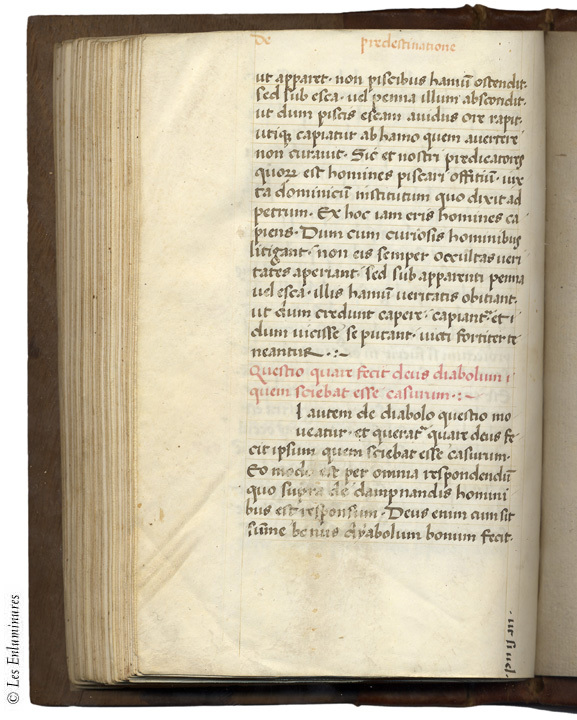 De predestinatione
ut apparet · non piscibus hamū ostendit.
sed sub esca · uel penna illum abscondit.
ut dum piscis escam auidus ore rapit.
utiqꝫ capiatur ab hamo quem auertere
non curauit · Sic et nostri predicatores
quoꝝ est homines piscari offitiū · iux
ta dominicū institutum quo dixit ad
petrum · Ex hoc iam eris homines ca
piens · Dum cum curiosis hominibus
litigant · non eis semper occultas ueri
tates aperiant · sed sub apparenti penna
uel esca · illis hamū ueritatis obitiant.
ut dum credunt capere · capiant᷑ · et i
dum uicisse se putant · uicti fortiter te
neantur · : ~
Questio quare fecit deus diabolum ·
quem sciebat esse casurum · : ~
I autem de diabolo questio mo
ueatur · et querat᷑ quare deus fe
cit ipsum quem sciebat esse casurum ·
Eo modo est per omnia respondendū
quo supra de dampnandis homini
bus est responsum · Deus enim cum sit
sūme bonus dyabolum bonum fecit ·
© Les Enluminures